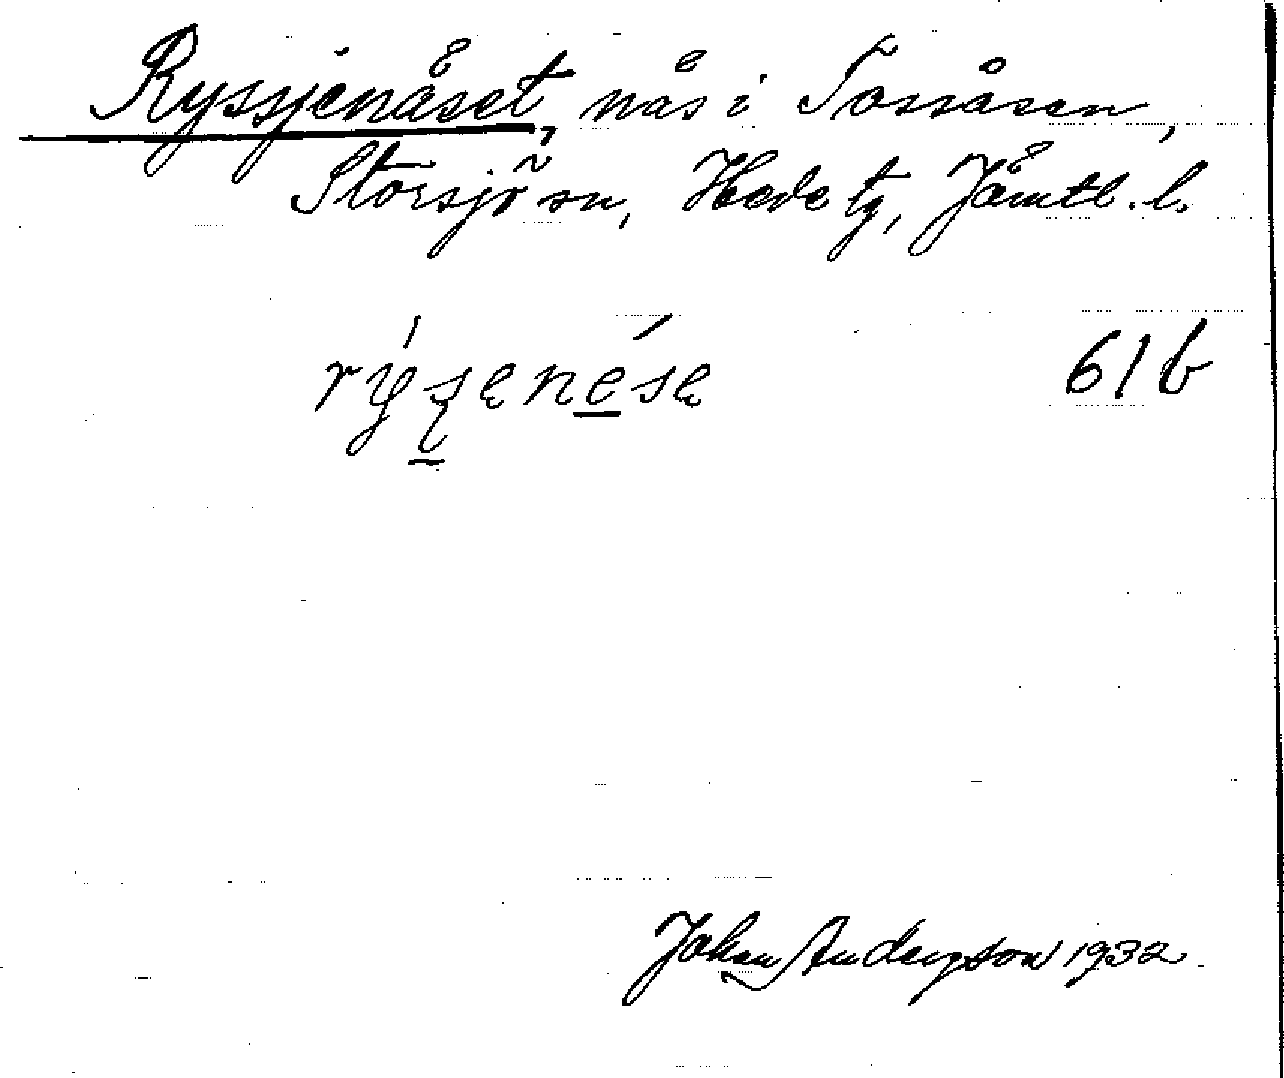 Ryssjenåset, nås i Tossåsen,
Storsjö sn, Hede tg, Jämtl. l.
rýsenése 61b
Johan Anderzson 1932